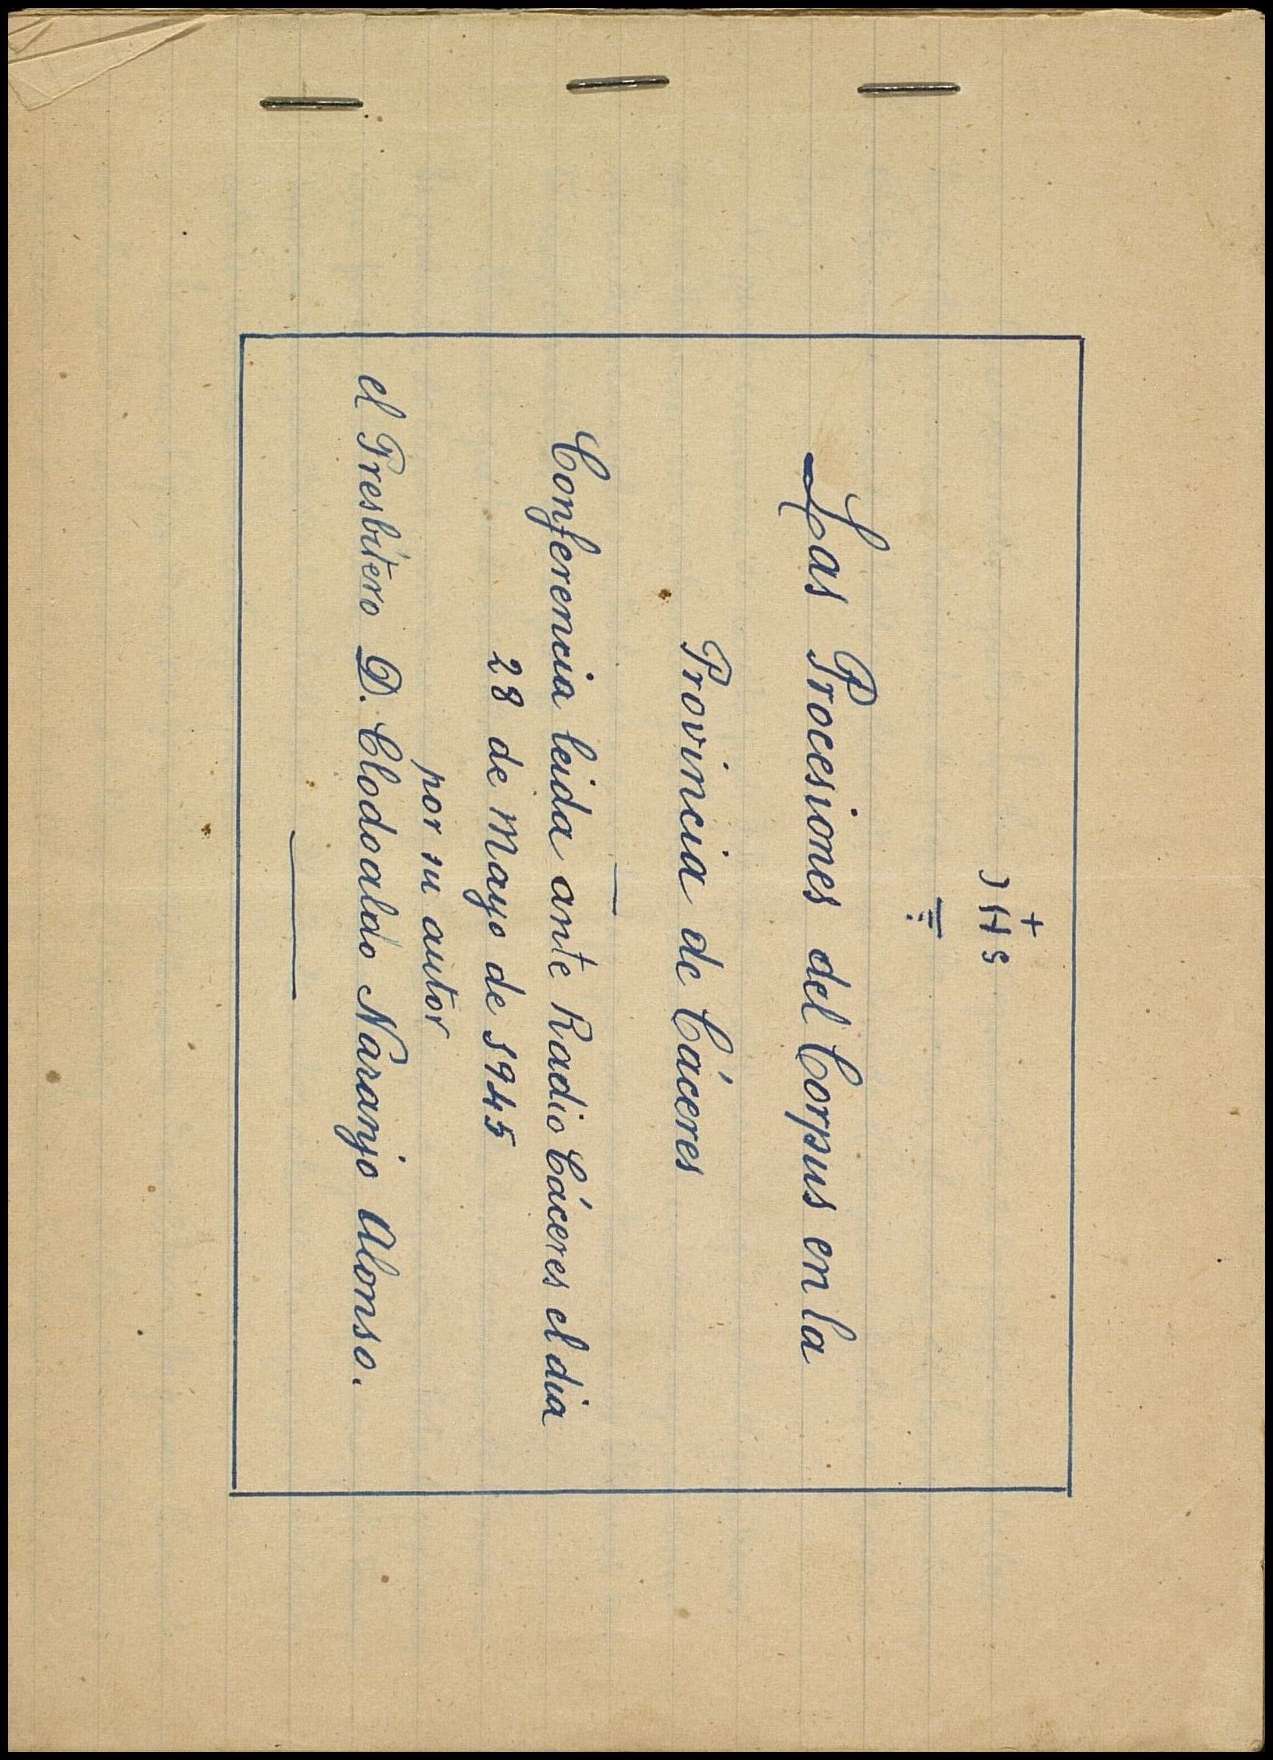 +
JHS
Las Procesiones del Corpus en la
Provincia de Cáceres
Conferencia leida ante Radio Cáceres el dia
28 de Mayo de 1945
por su autor
el Presbítero D. Clodoaldo Naranjo Alonso.